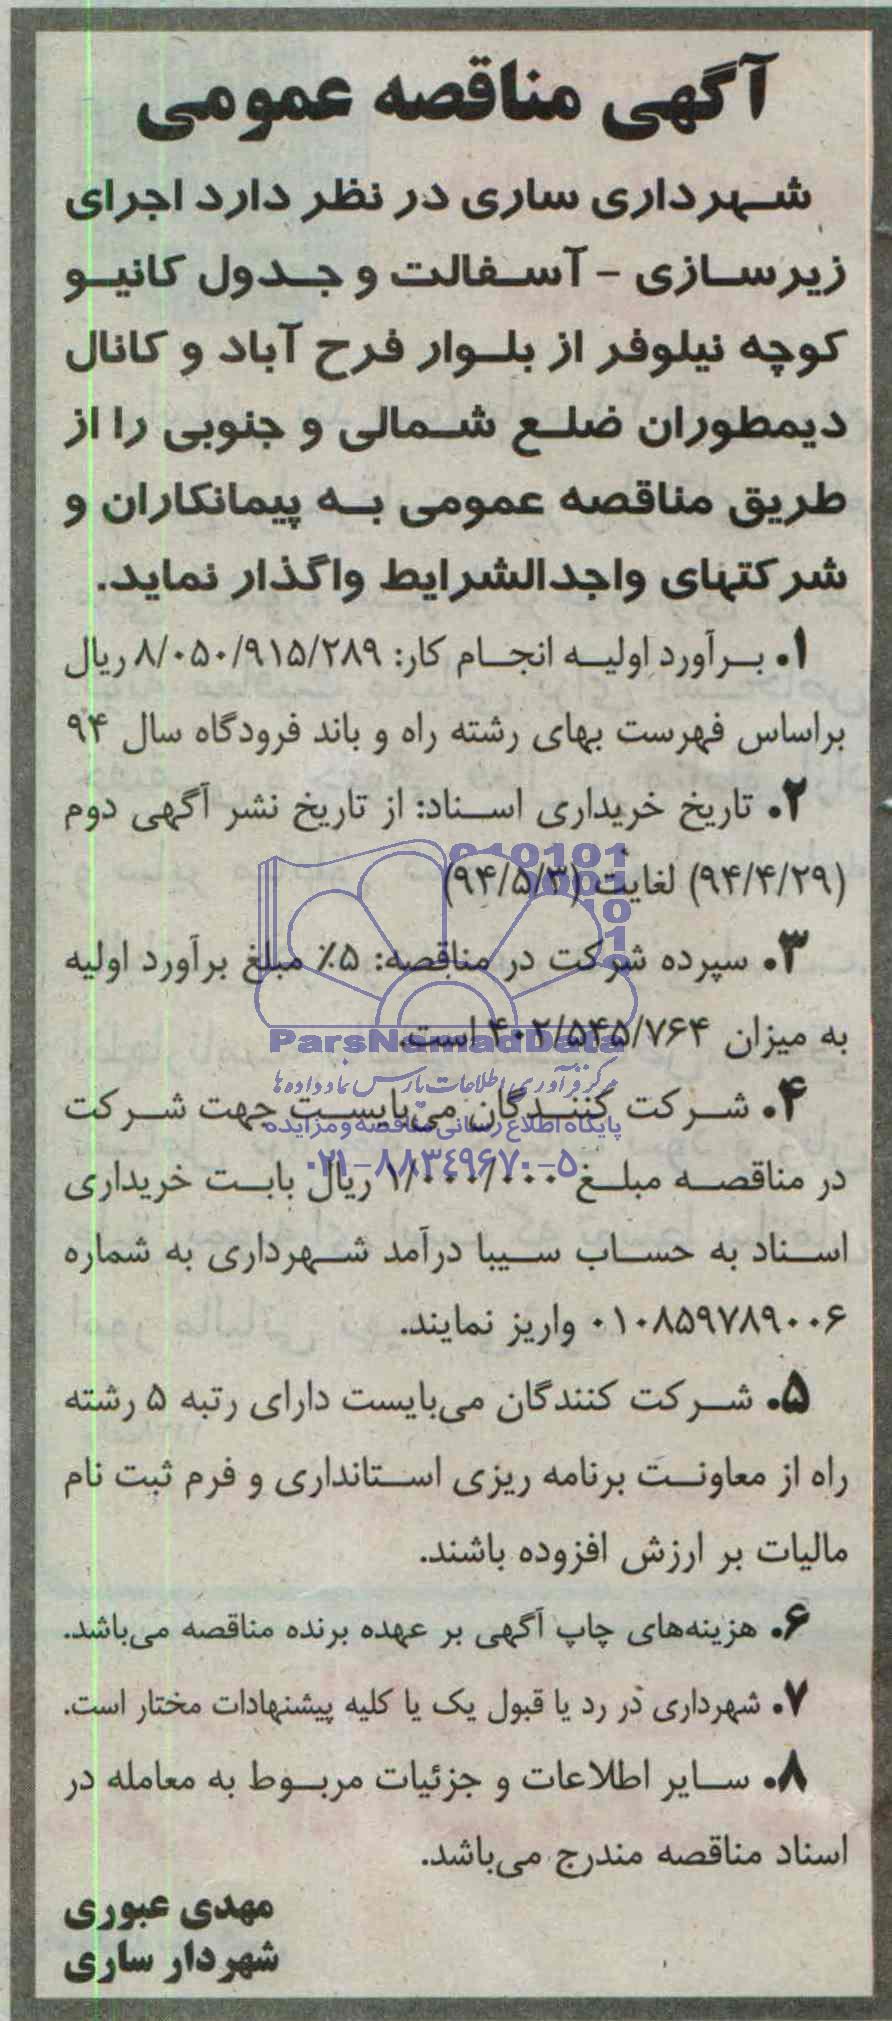 آگهی مناقصه عمومی
شهرداری ساری در نظر دارد اجرای
زیرسازی - آسفالت و جدول کانیو
کوچه نیلوفر از بلوار فرح آباد و کانال
دیمطوران ضلع شمالی و جنوبی را از
طریق مناقصه عمومی به پیمانکاران و
شرکتهای واجدالشرایط واگذار نماید.
۱. برآورد اولیه انجام کار: ۸/۰۵۰/۹۱۵/۲۸۹ ریال
براساس فهرست بهای رشته راه و باند فرودگاه سال ۹۴
۲. تاریخ خریداری اسناد: از تاریخ نشر آگهی دوم
(۹۴/۴/۲۹) لغایت (۹۴/۵/۳)
۳. سپرده شرکت در مناقصه: ۵٪ مبلغ برآورد اولیه
به میزان ۴۰۲/۵۴۵/۷۶۴ است.
ParsNamadData
مرکز فرآوری اطلاعات پارس نماد داده ها
۴. شرکت کنندگان می‌بایست جهت شرکت
پایگاه اطلاع رسانی مناقصه و مزایده
۰۲۱-۸۸۳۴۹۶۷۰-۵
در مناقصه مبلغ ۱/۰۰۰/۰۰۰ ریال بابت خریداری
اسناد به حساب سیبا درآمد شهرداری به شماره
۰۱۰۸۵۹۷۸۹۰۰۶ واریز نمایند.
۵. شرکت کنندگان می‌بایست دارای رتبه ۵ رشته
راه از معاونت برنامه ریزی استانداری و فرم ثبت نام
مالیات بر ارزش افزوده باشند.
۶. هزینه‌های چاپ آگهی بر عهده برنده مناقصه می‌باشد.
۷. شهرداری در رد یا قبول یک یا کلیه پیشنهادات مختار است.
۸. سایر اطلاعات و جزئیات مربوط به معامله در
اسناد مناقصه مندرج می‌باشد.
مهدی عبوری
شهردار ساری